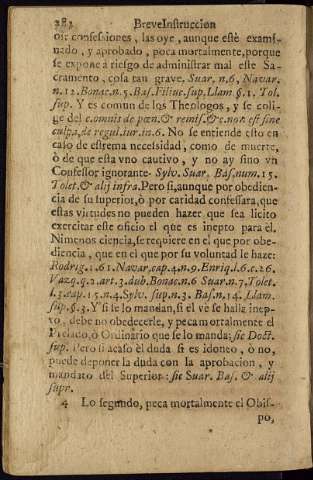 282 Breve Instruccion
oir confessiones, las oye, aunque estè exami-
nado, y aprobado, poca mortalmente, porque
se expone à riesgo de administrar mal este Sa-
cramento, cosa tan grave. Suar. n. 6, Navar.
n. 12. Bonac. n. 5. Bas. Filiuc. sup. Llam. §. 1. Tol.
sup. Y es comun de los Theologos, y se coli-
ge del c. omnis de pœn. & remiss. & c. non est sine
culpa, de regul. iur. in. 6. No se entiende esto en
caso de estrema necessidad, como de muerte,
ò de que esta vno cautivo, y no ay sino vn
Confessor ignorante. Sylv. Suar. Bas. num. 15.
Tolet. & alij infra. Pero si, aunque por obedien-
cia de su superior, ò por caridad confessara, que
estas virtudes no pueden hazer que sea licito
exercitar este oficio el que es inepto para èl.
Ni menos ciencia, se requiere en el que por obe-
diencia, que en el que por su voluntad le haze:
Rodrig. 1. 61. Navar. cap. 4. n. 9. Enriq. l. 6. c. 26.
Vazq. q. 2. art. 3. dub. Bonac. n. 6 Suar. n. 7. Tolet.
l. 3. cap. 15. n. 4. Sylv. sup. n. 3. Bas. n. 14. Llam.
sup. §. 3. Y si le lo mandan, si el vè se halla inep-
to, debe no obedecerle, y peca mortalmente el
Prelado, ò Ordinario que se lo manda: sic Doct.
sup. Pero si acaso èl duda si es idoneo, o no,
puede deponer la duda con la aprobacion, y
mandato del Superior: sic Suar. Bas. & alij
supr.
4 Lo segundo, peca mortalmente el Obis-
po,